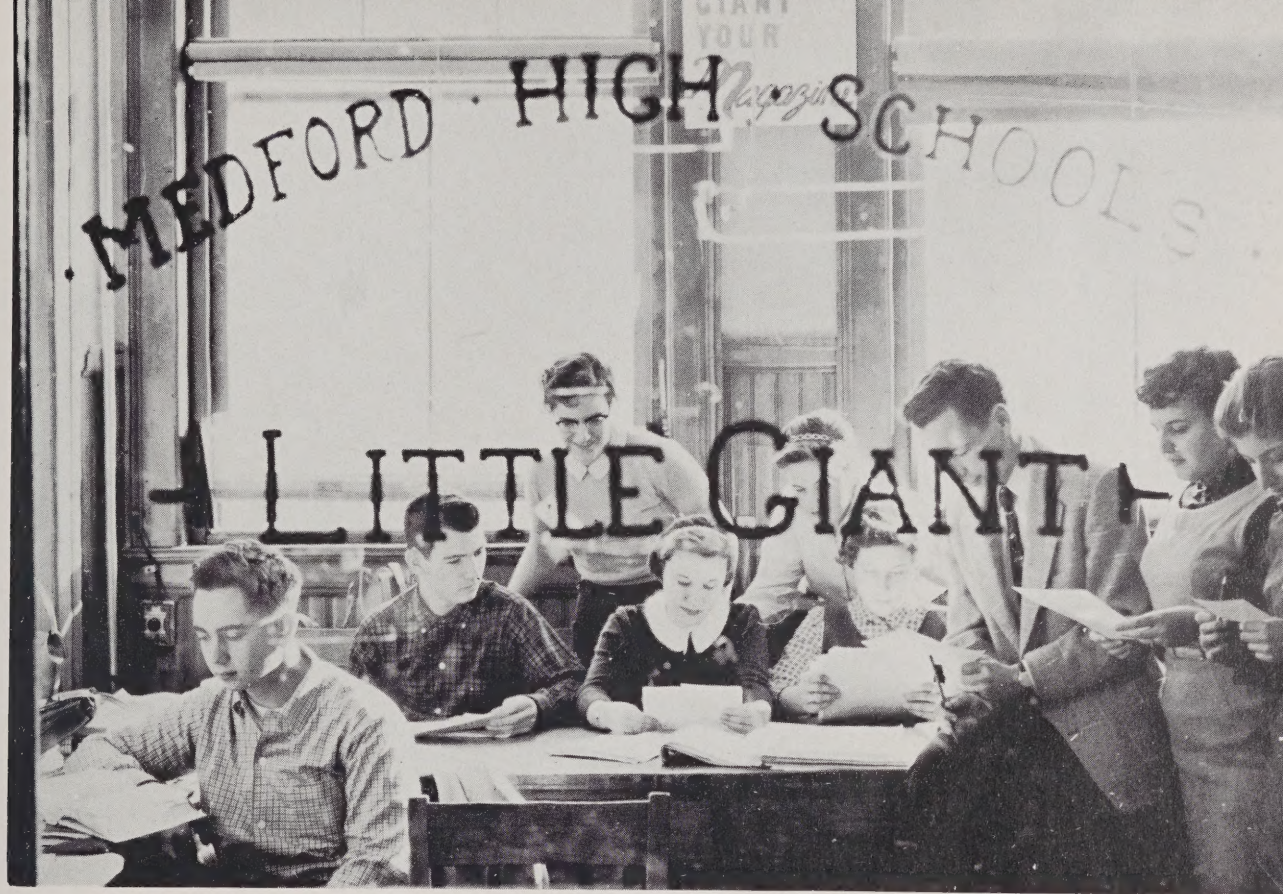 GIANT
YOUR
Magazine
· MEDFORD · HIGH · SCHOOLS ·
- LITTLE GIANT -